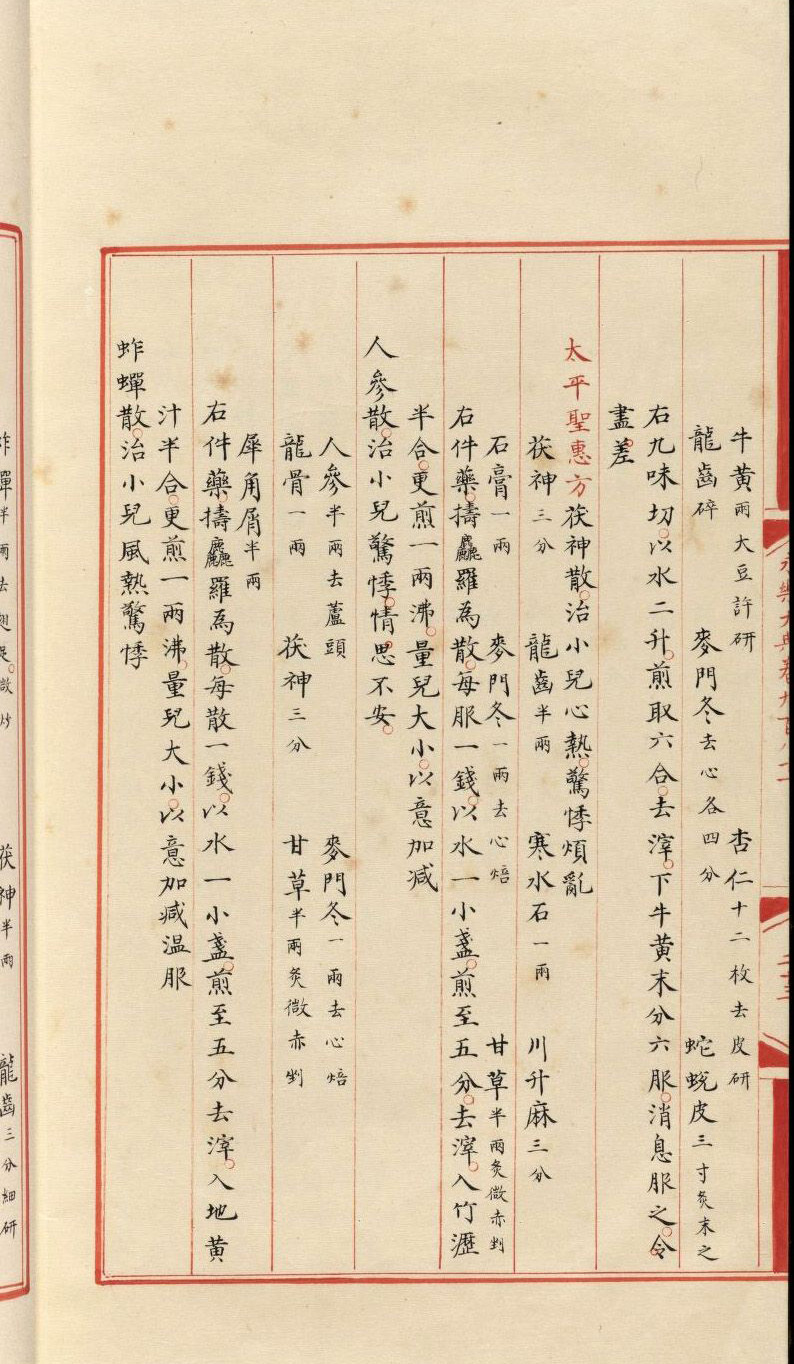 牛黃兩大豆許研　杏仁十二枚去皮研
龍齒碎　麥門冬去心各四分　蛇蛻皮三寸炙末之
右九味切以水二升煎取六合去滓下牛黃末分六服消息服之令
盡差
太平聖惠方茯神散治小兒心熱驚悸煩亂
茯神三分　龍齒半兩　寒水石一兩　川升麻三分
石膏一兩　麥門冬一兩去心焙　甘草半兩炙微赤剉
右件藥擣麤羅為散每服一錢以水一小盞煎至五分去滓入竹瀝
半合更煎一兩沸量兒大小以意加減
人參散治小兒驚悸情思不安
人參半兩去蘆頭　麥門冬一兩去心焙
龍骨一兩　茯神三分　甘草半兩炙微赤剉
犀角屑半兩
右件藥擣麤羅為散每散一錢以水一小盞煎至五分去滓入地黃
汁半合更煎一兩沸量兒大小以意加減温服
蚱蟬散治小兒風熱驚悸
蚱蟬半兩去翅足微炒　茯神半兩　龍齒三分細研